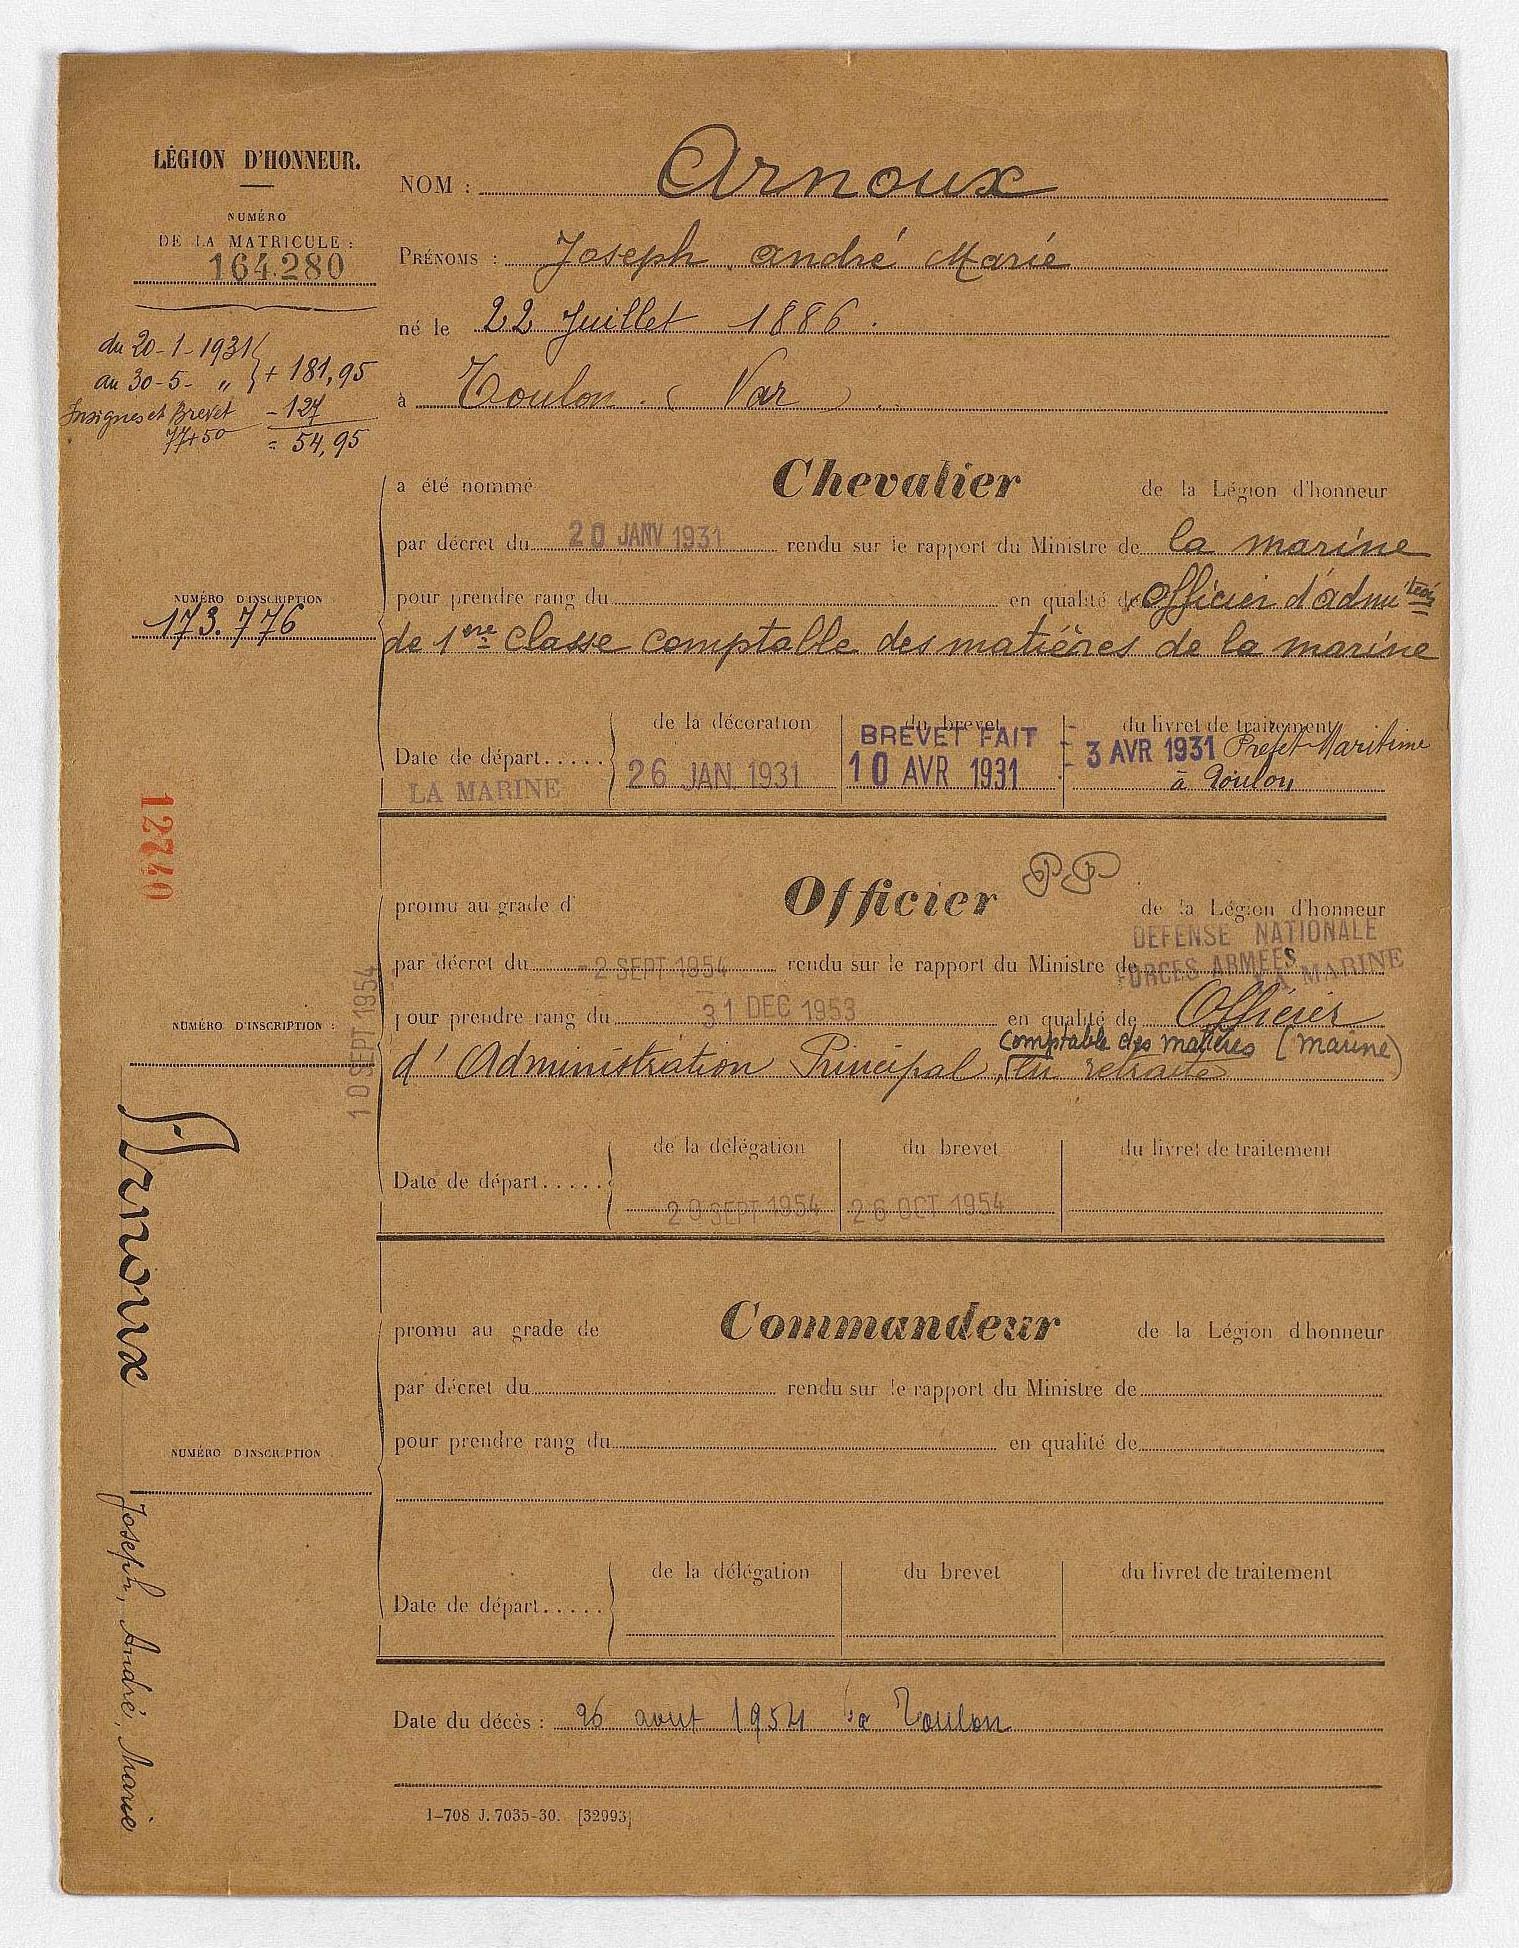 LÉGION D'HONNEUR.
NUMÉRO
DE LA MATRICULE :
164.280
du 20-1-1931
au 30-5- " + 181,95
Insignes et Brevet - 127
77+50 = 54,95
NOM : Arnoux
PRÉNOMS : Joseph André Marie
né le 22 Juillet 1886.
à Toulon. ( Var )
a été nommé Chevalier de la Légion d'honneur
par décret du 20 JANV 1931 rendu sur le rapport du Ministre de la marine
NUMÉRO D'INSCRIPTION
173.776
pour prendre rang du en qualité d'officier d'admtion
de 1ère classe comptable des matières de la marine
Date de départ.....
LA MARINE
de la décoration
26 JAN. 1931
du brevet
BREVET FAIT
10 AVR 1931
du livret de traitement
3 AVR 1931 Préfet Maritime
à Toulon
12740
promu au grade d' Officier PP de la Légion d'honneur
DEFENSE NATIONALE
par décret du -2 SEPT 1954 rendu sur le rapport du Ministre de
FORCES ARMÉES
LA MARINE
pour prendre rang du 31 DEC 1953 en qualité de Officier
comptable des matières (marine)
d'Administration Principal, en retraite
NUMÉRO D'INSCRIPTION :
10 SEPT 1954
Date de départ.....
de la délégation
20 SEPT 1954
du brevet
26 OCT 1954
du livret de traitement
Arnoux
Joseph, André, Marie
promu au grade de Commandeur de la Légion d'honneur
par décret du rendu sur le rapport du Ministre de
pour prendre rang du en qualité de
NUMÉRO D'INSCRIPTION
Date de départ.....
de la délégation
du brevet
du livret de traitement
Date du décès : 26 aout 1954 à Toulon
1-708 J. 7035-30. [32993]